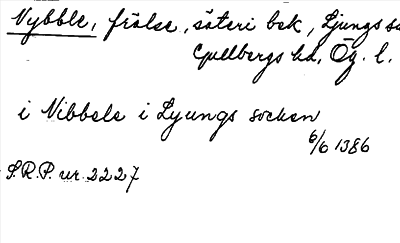 Nybble, frälse, säteri bsk, Ljungs s
Gullbergs hd, Ög. l.
i Nibbele i Lyungs socken
6/6 1386
S.R.P. nr. 2227